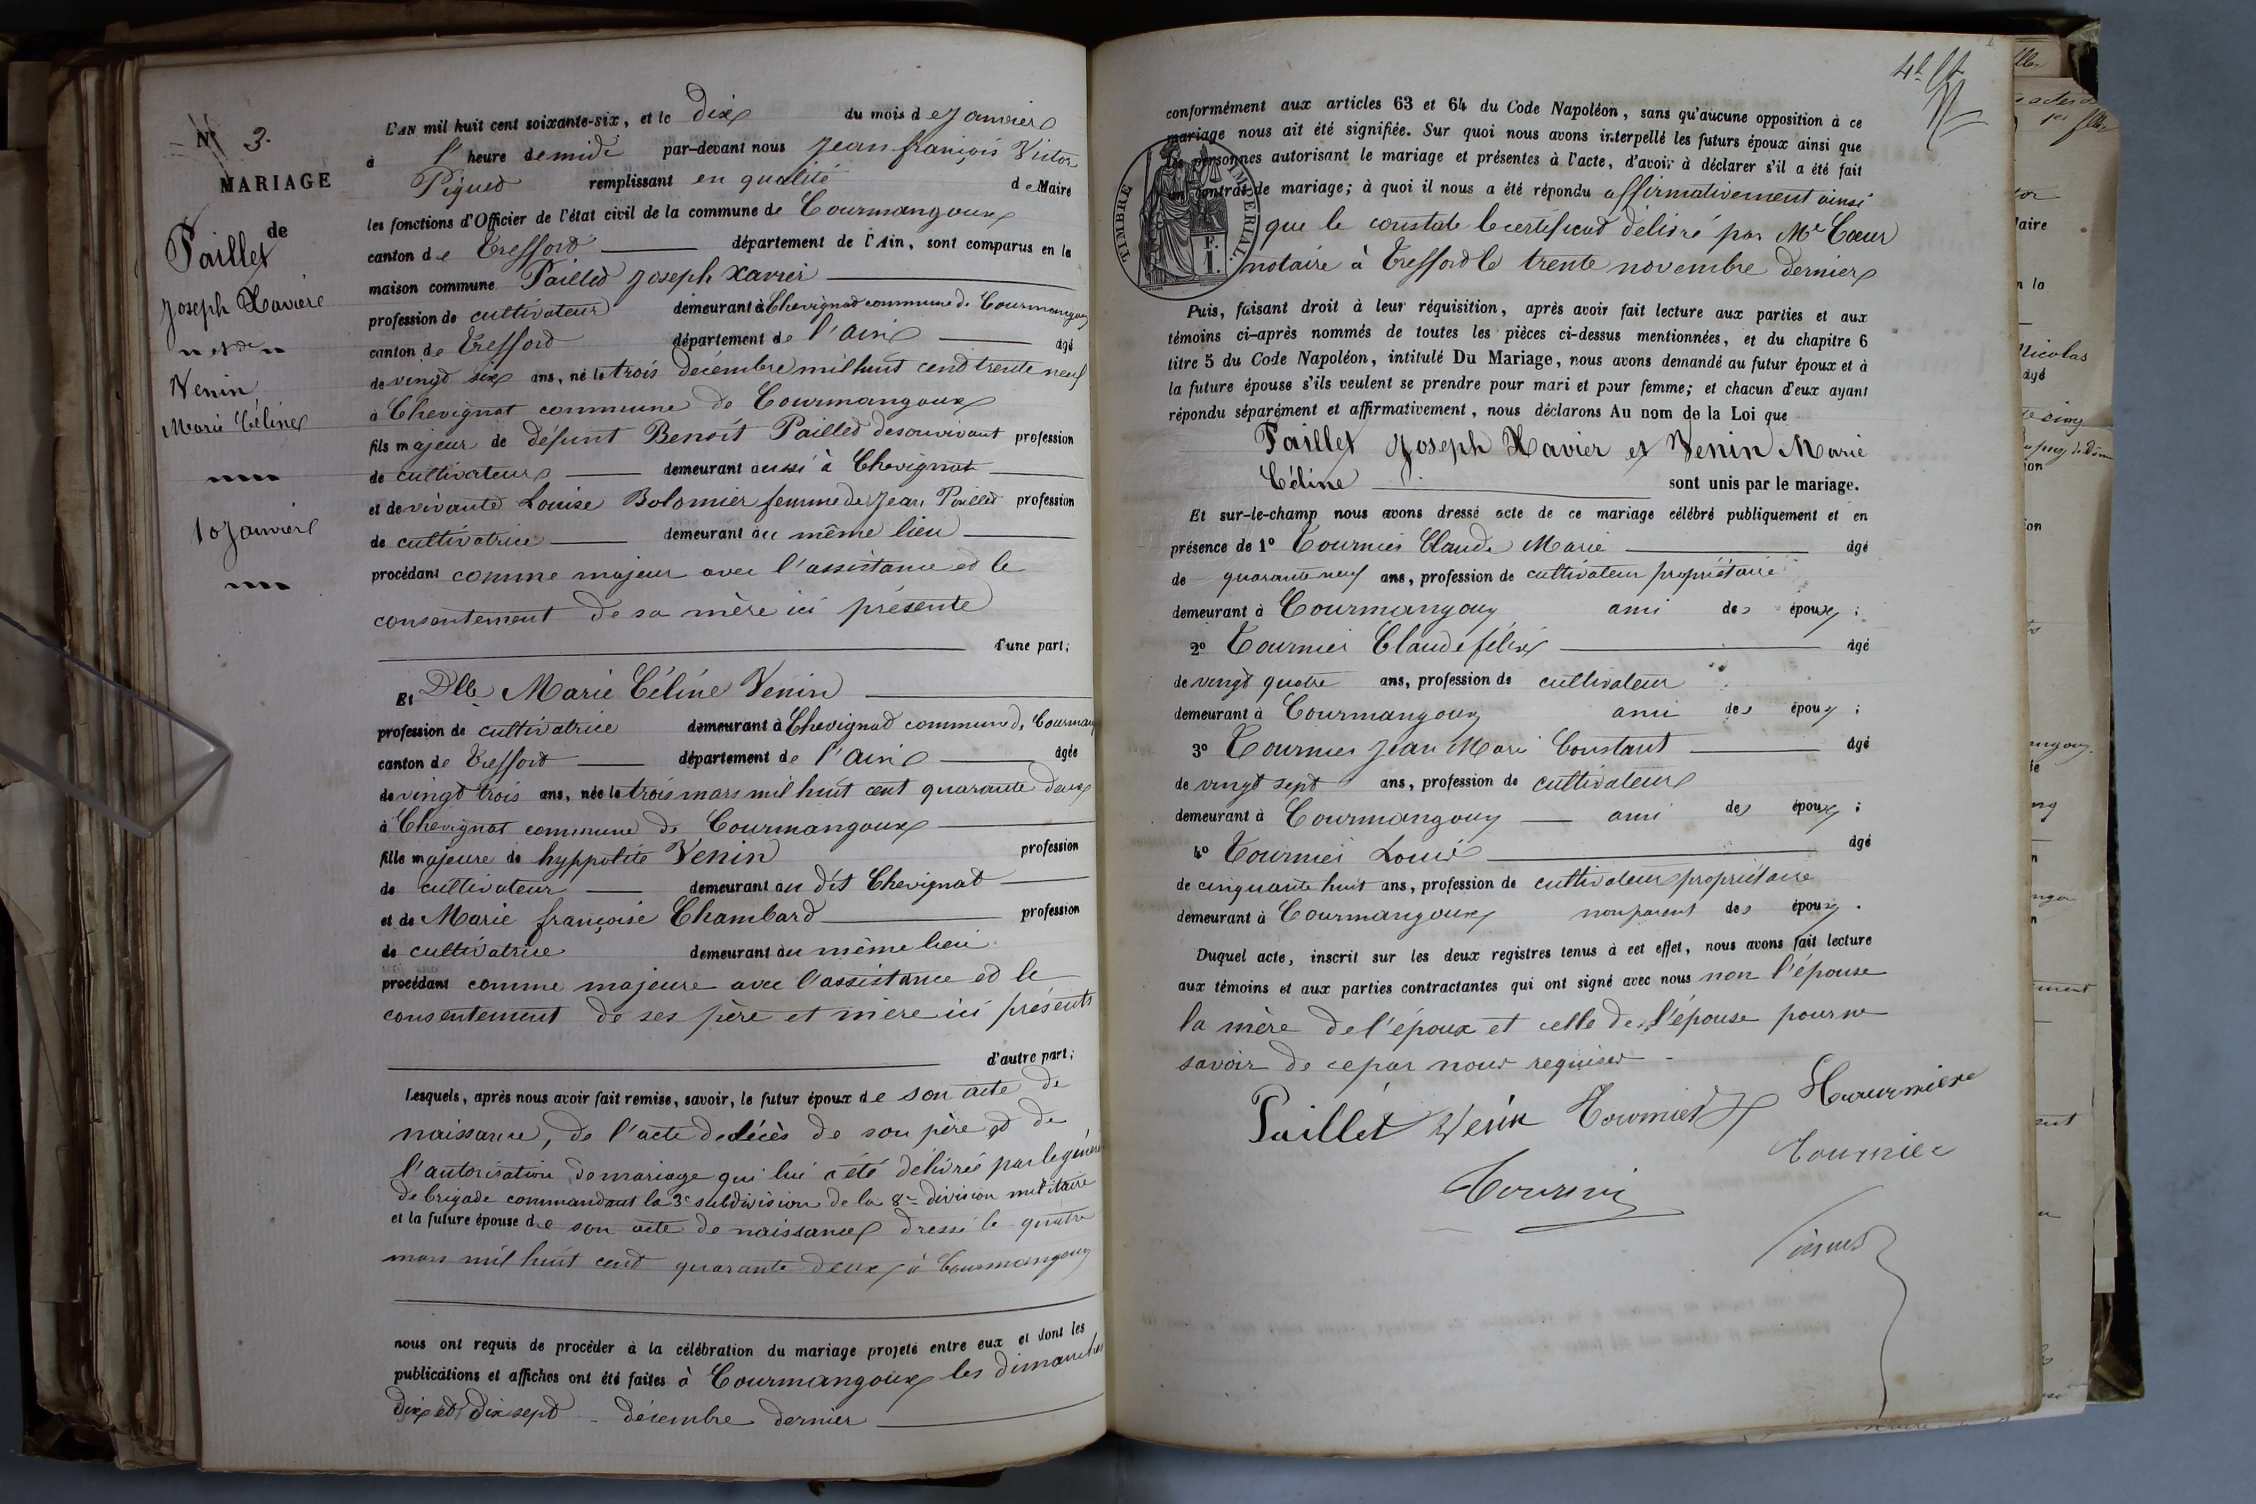 Nº 3.
MARIAGE
de
Paillet
Joseph Xavier
et de
Venin
Marie Céline
10 Janvier
L'AN mil huit cent soixante-six, et le dix du mois de Janvier
à l' heure de midi par-devant nous Jean françois Victor
Piquet remplissant en qualité de Maire
les fonctions d'Officier de l'état civil de la commune de Courmangoux
canton de Treffort département de l'Ain, sont comparus en la
maison commune Paillet Joseph Xavier
profession de cultivateur demeurant à Chevignat commune de Courmangoux
canton de Treffort département de l'Ain âgé
de vingt six ans, né le trois décembre mil huit cent trente neuf
à Chevignat commune de Courmangoux
fils majeur de défunt Benoit Paillet de son vivant profession
de cultivateur demeurant aussi à Chevignat
et de vivante Louise Bolomier femme de Jean Paillet profession
de cultivatrice demeurant au même lieu
procédant comme majeur avec l'assistance et le
consentement de sa mère ici présente
d'une part;
Et Dlle Marie Céline Venin
profession de cultivatrice demeurant à Chevignat commune de Courmang
canton de Treffort département de l'Ain âgée
de vingt trois ans, née le trois mars mil huit cent quarante deux
à Chevignat commune de Courmangoux
fille majeure de hyppolite Venin profession
de cultivateur demeurant au dit Chevignat
et de Marie françoise Chambard profession
de cultivatrice demeurant au même lieu
procédant comme majeure avec l'assistance et le
consentement de ses père et mère ici présents
d'autre part;
Lesquels, après nous avoir fait remise, savoir, le futur époux de son acte de
naissance, de l'acte de décès de son père et de
l'autorisation de mariage qui lui a été délivrée par le général
de brigade commandant la 3e subdivision de la 8e division militaire
et la future épouse de son acte de naissance dressé le quatre
mars mil huit cent quarante deux à Courmangoux
nous ont requis de procéder à la célébration du mariage projeté entre eux et dont les
publications et affiches ont été faites à Courmangoux les dimanches
dix et dix sept décembre dernier
conformément aux articles 63 et 64 du Code Napoléon, sans qu'aucune opposition à ce
mariage nous ait été signifiée. Sur quoi nous avons interpellé les futurs époux ainsi que
les personnes autorisant le mariage et présentes à l'acte, d'avoir à déclarer s'il a été fait
un contrat de mariage; à quoi il nous a été répondu affirmativement ainsi
que le constate le certificat délivré par Me Cœur
notaire à Treffort le trente novembre dernier
TIMBRE IMPÉRIAL.
F.
1.
Puis, faisant droit à leur réquisition, après avoir fait lecture aux parties et aux
témoins ci-après nommés de toutes les pièces ci-dessus mentionnées, et du chapitre 6
titre 5 du Code Napoléon, intitulé Du Mariage, nous avons demandé au futur époux et à
la future épouse s'ils veulent se prendre pour mari et pour femme; et chacun d'eux ayant
répondu séparément et affirmativement, nous déclarons Au nom de la Loi que
Paillet Joseph Xavier et Venin Marie
Céline sont unis par le mariage.
Et sur-le-champ nous avons dressé acte de ce mariage célébré publiquement et en
présence de 1º Tournier Claude Marie âgé
de quarante neuf ans, profession de cultivateur propriétaire
demeurant à Courmangoux ami des époux;
2º Tournier Claude félix âgé
de vingt quatre ans, profession de cultivateur
demeurant à Courmangoux ami des époux;
3º Tournier Jean Marie Constant âgé
de vingt sept ans, profession de cultivateur
demeurant à Courmangoux ami des époux;
4º Tournier Louis âgé
de cinquante huit ans, profession de cultivateur propriétaire
demeurant à Courmangoux non parent des époux.
Duquel acte, inscrit sur les deux registres tenus à cet effet, nous avons fait lecture
aux témoins et aux parties contractantes qui ont signé avec nous non l'épouse
la mère de l'époux et celle de l'épouse pour ne
savoir de ce par nous requises
Paillet Venin Tournier Tournier
Tournier
Tournier
Piquet